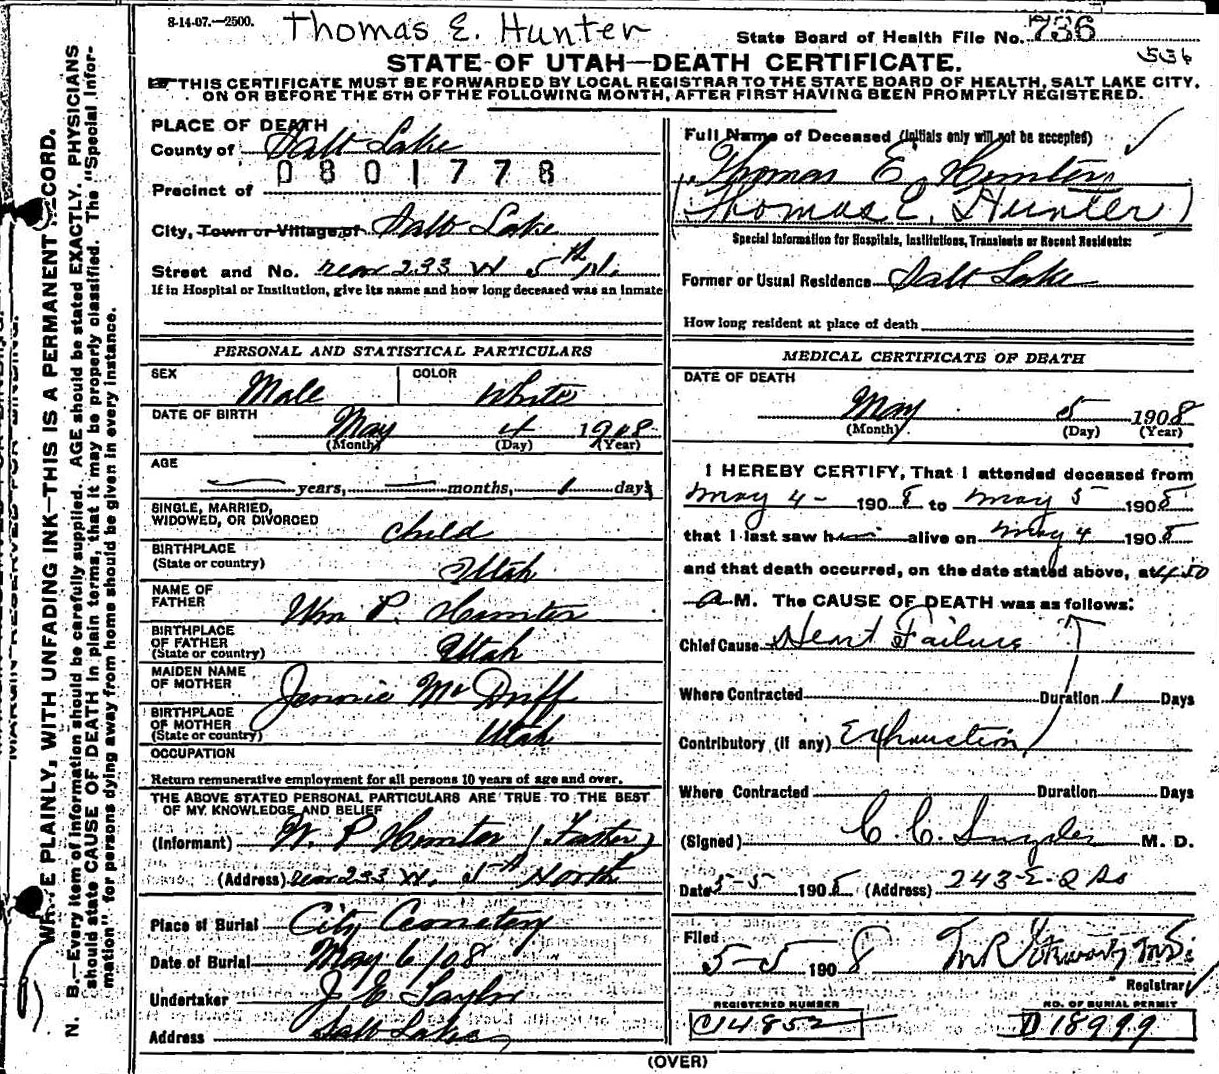 8-14-07.—2500.
Thomas E. Hunter
State Board of Health File No. 736
536
STATE OF UTAH—DEATH CERTIFICATE.
THIS CERTIFICATE MUST BE FORWARDED BY LOCAL REGISTRAR TO THE STATE BOARD OF HEALTH, SALT LAKE CITY,
ON OR BEFORE THE 5TH OF THE FOLLOWING MONTH, AFTER FIRST HAVING BEEN PROMPTLY REGISTERED.
PLACE OF DEATH
County of Salt Lake
0801778
Precinct of
City, Town or Village of Salt Lake
Street and No. rear 233 W 5th N.
If in Hospital or Institution, give its name and how long deceased was an inmate
PERSONAL AND STATISTICAL PARTICULARS
SEX Male COLOR White
DATE OF BIRTH May 4 1908
(Month) (Day) (Year)
AGE
years, months, 1 days
SINGLE, MARRIED,
WIDOWED, OR DIVORCED Child
BIRTHPLACE
(State or country) Utah
NAME OF
FATHER Wm P. Hunter
BIRTHPLACE
OF FATHER
(State or country) Utah
MAIDEN NAME
OF MOTHER Jennie McDuff
BIRTHPLACE
OF MOTHER
(State or country) Utah
OCCUPATION
Return remunerative employment for all persons 10 years of age and over.
THE ABOVE STATED PERSONAL PARTICULARS ARE TRUE TO THE BEST
OF MY KNOWLEDGE AND BELIEF
(Informant) W. P. Hunter (Father)
(Address) rear 233 W. 5th North
Place of Burial City Cemetery
Date of Burial May 6/08
Undertaker J E Taylor
Address Salt Lake
Full Name of Deceased (Initials only will not be accepted)
Thomas E. Hunter
(Thomas E. Hunter)
Special Information for Hospitals, Institutions, Transients or Recent Residents:
Former or Usual Residence Salt Lake
How long resident at place of death
MEDICAL CERTIFICATE OF DEATH
DATE OF DEATH
May 5 1908
(Month) (Day) (Year)
I HEREBY CERTIFY, That I attended deceased from
May 4 - 1908 to May 5 1908
that I last saw him alive on May 4 1908
and that death occurred, on the date stated above, at 4:50
A M. The CAUSE OF DEATH was as follows:
Chief Cause Heart Failure
Where Contracted Duration 1 Days
Contributory (if any) Exhaustion
Where Contracted Duration Days
(Signed) C. C. Snyder M. D.
Date 5-5 1908 (Address) 243 E. 2 So
Filed
5-5 1908
Registrar
REGISTERED NUMBER
C14852
NO. OF BURIAL PERMIT
D18999
(OVER)
WRITE PLAINLY, WITH UNFADING INK—THIS IS A PERMANENT RECORD.
N. B.—Every item of information should be carefully supplied. AGE should be stated EXACTLY. PHYSICIANS
should state CAUSE OF DEATH in plain terms, that it may be properly classified. The "Special Infor-
mation" for persons dying away from home should be given in every instance.